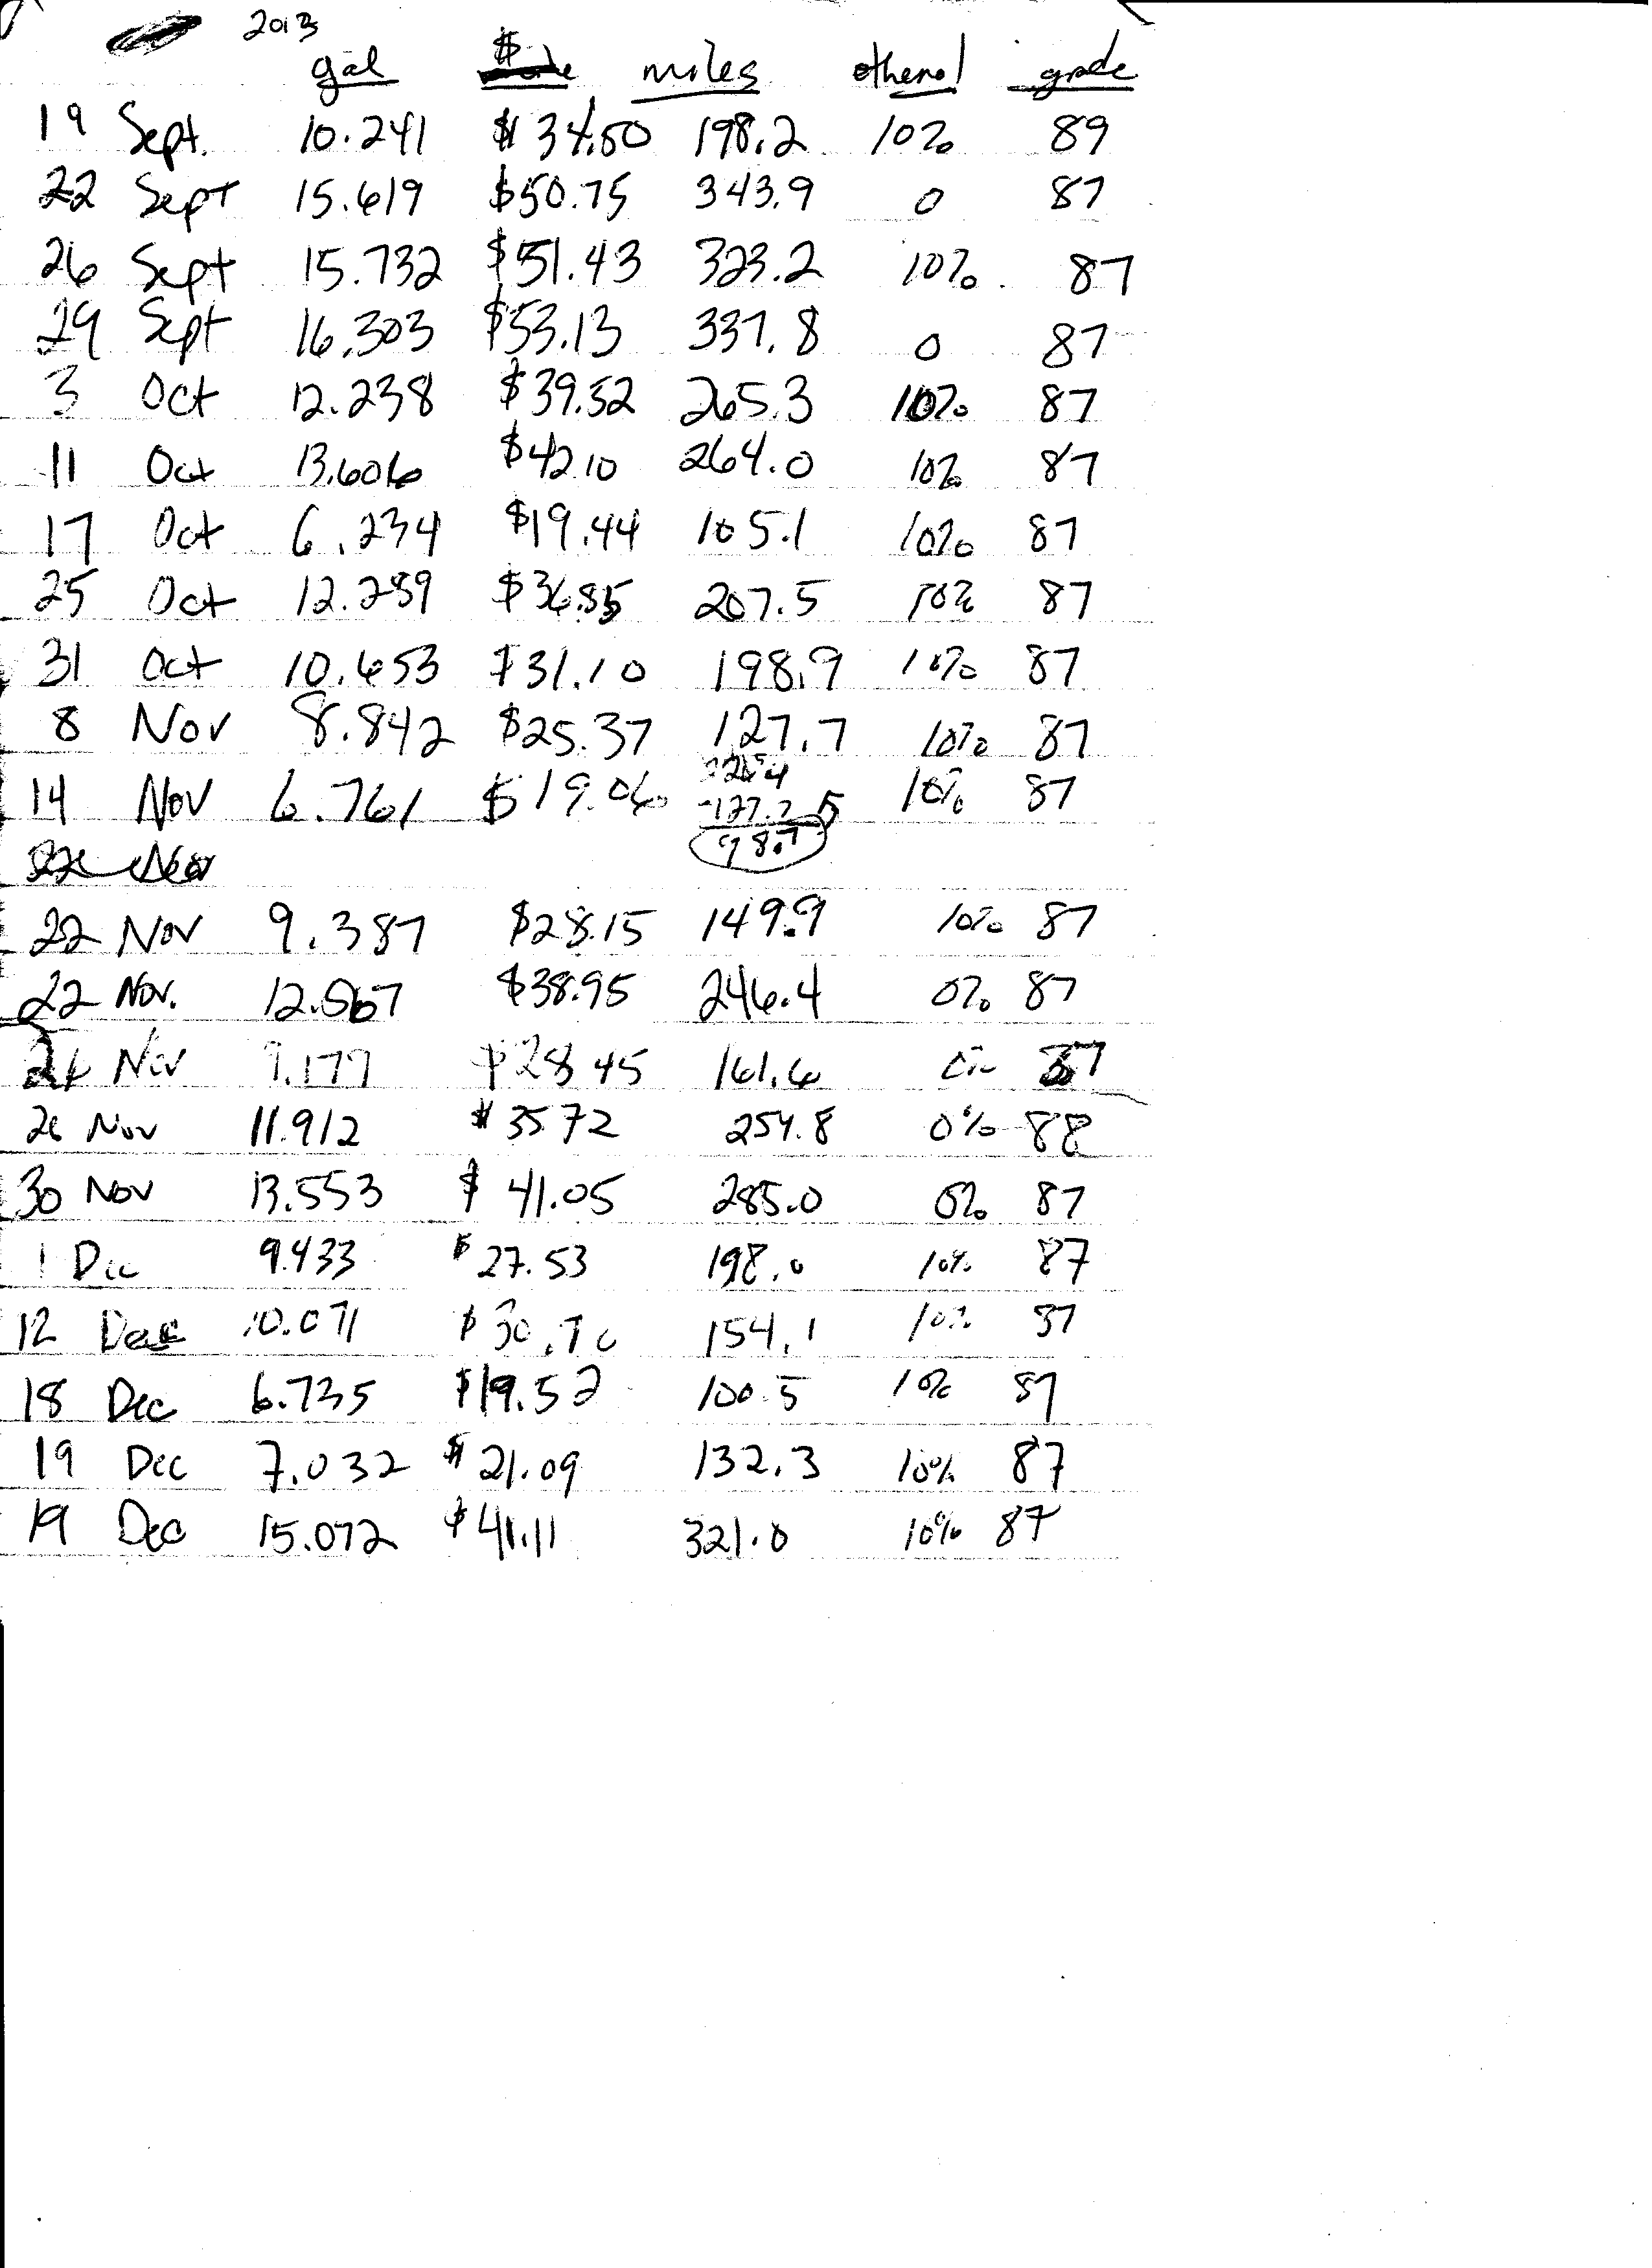 2013
gal $ miles ethenol grade
19 Sept. 10.241 $34.50 198.2 10% 89
22 Sept 15.619 $50.75 343.9 0 87
26 Sept 15.732 $51.43 323.2 10% 87
29 Sept 16.303 $53.13 337.8 0 87
3 Oct 12.238 $39.52 265.3 10% 87
11 Oct 13.606 $42.10 264.0 10% 87
17 Oct 6.234 $19.44 105.1 10% 87
25 Oct 12.289 $36.85 207.5 10% 87
31 Oct 10.653 $31.10 198.9 10% 87
8 Nov 8.842 $25.37 127.7 10% 87
14 Nov 6.761 $19.06 98.7 10% 87
22 Nov
22 Nov 9.387 $28.15 149.9 10% 87
22 Nov. 12.567 $38.95 246.4 0% 87
Nov 9.177 $28.45 161.6 87
26 Nov 11.912 $35.72 254.8 0% 88
30 Nov 13.553 $41.05 285.0 0% 87
1 Dec 9.433 $27.53 198.0 10% 87
12 Dec 10.071 154.1 10% 87
18 Dec 6.735 $19.52 100.5 10% 87
19 Dec 7.032 $21.09 132.3 10% 87
19 Dec 15.072 $41.11 321.0 10% 87